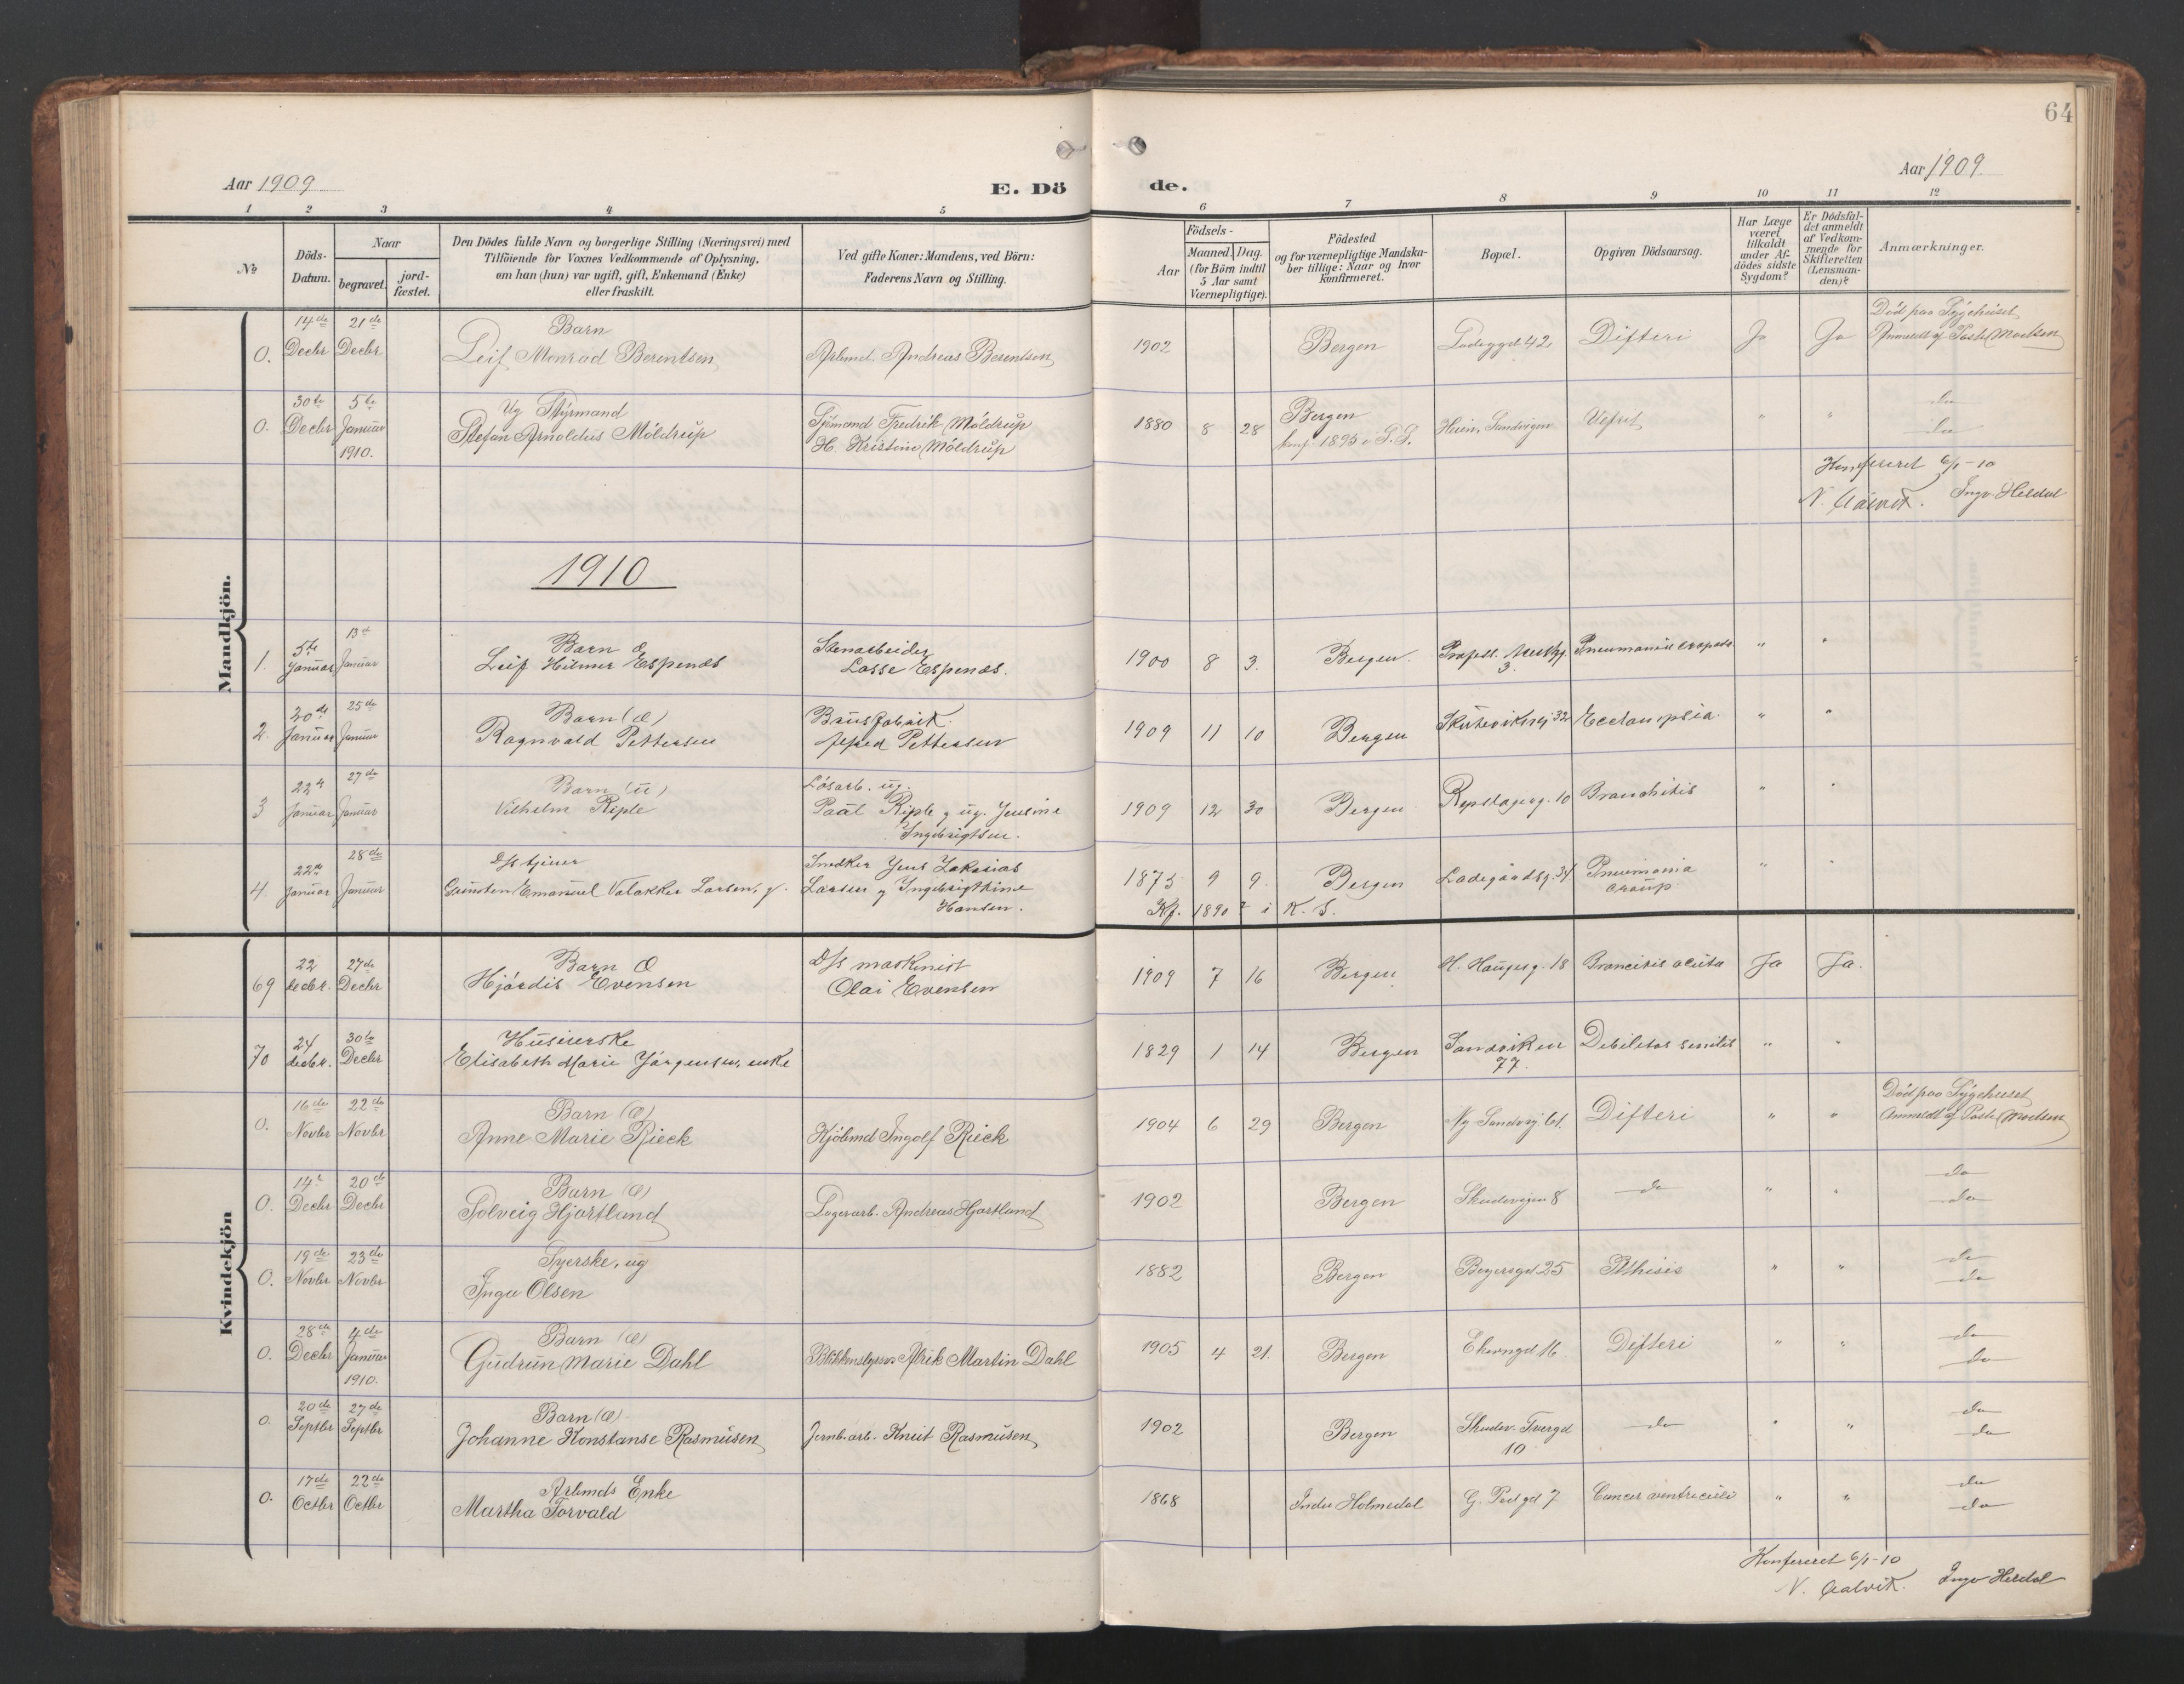 64
Aar 1909
E. Dö
de.
Aar 1909
1 2 3 4 5 6 7 8 9 10 11 12
No
Döds-
Datum.
Naar
begravet.
jord-
fæstet.
Den Dödes fulde Navn og borgerlige Stilling (Næringsvei) med
Tilföiende for Voxnes Vedkommende af Oplysning,
om han (hun) var ugift, gift, Enkemand (Enke)
eller fraskilt.
Ved gifte Koner: Mandens, ved Börn:
Faderens Navn og Stilling.
Födsels-
Aar
Maaned. Dag.
(for Börn indtil
5 Aar samt
Værnepligtige).
Födested
og for værnepligtige Mandska-
ber tillige: Naar og hvor
konfirmeret.
Bopæl.
Opgiven Dödsaarsag.
Har Læge
været
tilkaldt
under Af-
dödes sidste
Sygdom?
Er Dödsfal-
det anmeldt
af Vedkom-
mende for
Skifteretten
(Lensman-
den)?
Anmærkninger.
Mandkjön.
14de 21de Barn Död paa Sygehuset
0. Decbr Decbr Leif Monrad Berentsen Arbmd. Andreas Berentsen 1902 Bergen Ladeggd 42 Difteri Ja Ja Anmeldt af Pastor Madsen
30te 5te Ug Styrmand Bergen do
0. Decbr Januar Stefan Arnoldus Möldrup Sjömand Fredrik Möldrup 1880 8 28 konf. 1895 i S. S. Sandvigen " " do
1910. H. Kristine Möldrup
Konfereret 6/1-10
N. Aalvik. Ingv. Heldal
1910
5te 13de Barn Æ Stenarbeider
1. Januar Januar Leif Hilmer Espenes Lasse Espenes. 1900 8 3. Bergen. 3. " "
20de 25de Barn (Æ) Brusfabrik.
2. Januar Januar Ragnvald Pettersen Alfred Pettersen 1909 11 10 Bergen Skuteviksvei 32 Eclampsia. " "
22de 27de Barn (u) Lösarb. ug.
3 Januar Januar Vilhelm Riple Paal Riple og ug. Jensine 1909 12 30 Bergen Repslagerg. 10 Bronchitis " "
Ingebrigtsen.
22de 28de D/s tjener Snedker Jens Zakarias
4. Januar Januar Emanuel Valakker Larsen, g. Larsen og Ingebrigtkine 1875 9 9. Bergen Ladegaardsg. 34 Pneumonia " "
Hansen. Kf. 1890 i K. S. croup
Kvindekjön
22 27de Barn Æ D/s maskinist
69 decbr. Decbr Hjördis Evensen Olai Evensen 1909 7 16 Bergen H. Haugesg. 18 Broncitis acuta Ja Ja.
24 30te Husierske
70 decbr. Decbr Elisabeth Marie Jörgensen, enke 1829 1 14 Bergen Sandviken Debilitas senilis " "
77.
16de 22de Barn (Æ) Död paa Sygehuset
0. Novbr Novbr Anne Marie Rieck Kjöbmd Ingolf Rieck 1904 6 29 Bergen Ny Sandvvj. 61. Difteri " " Anmeldt af Pastor Madsen
14de 20de Barn (Æ) do
0. Decbr Decbr Solveig Hjortland Lagerarb. Andreas Hjortland 1902 Bergen Skudevigen 8 do " " do
19de 23de Syerske, ug do
0. Novbr Novbr Inga Olsen 1882 Bergen Beyersgd 25 Pthisis " " do
28de 4de Barn (Æ) do
0. Decbr Januar Gudrun Marie Dahl Blikkenslagersv. Alrik Martin Dahl 1905 4 21. Bergen Ekrengd 16 Difteri " " do
1910.
20de 27de Barn (Æ) do
0. Septbr Septbr Johanne Konstanse Rasmusen Jernb.arb. Knut Rasmusen 1902 Bergen Skudev. Tvergd do " " do
10
17de 22de Arbmds Enke do
0. Octbr Octbr Martha Torvald 1868 Indre Holmedal 7 Cancer ventriculi " " do
Konfereret 6/1-10
N. Aalvik. Ingv Heldal